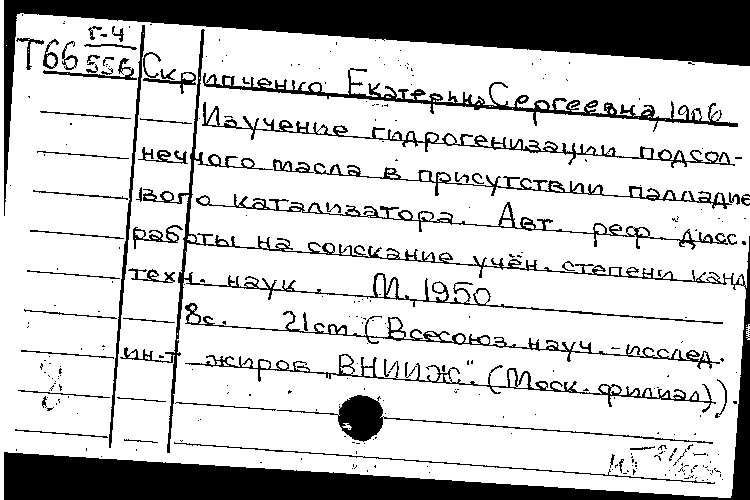 Г-4
Т66 556 Скрипченко, Екатерина Сергеевна, 1906
Изучение гидрогенизации подсол-
нечного масла в присутствии палладие
вого катализатора. Авт. реф. дисс.
работы на соискание учён. степени канд
техн. наук. М., 1950.
8с. 21 ст. (Всесоюз. науч.-исслед.
ин-т жиров "ВНИИЖ". (Моск. филиал)).
8